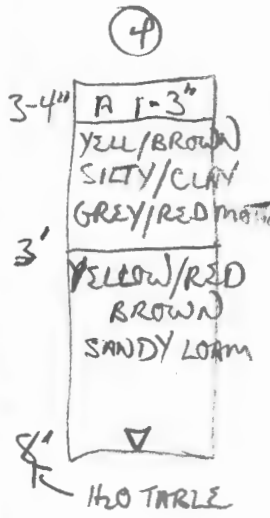 4
3-4" A 1-3"
YELL/BROWN
SILTY/CLAY
GREY/RED
3'
YELLOW/RED
BROWN
SANDY LOAM
8'
H2O TABLE